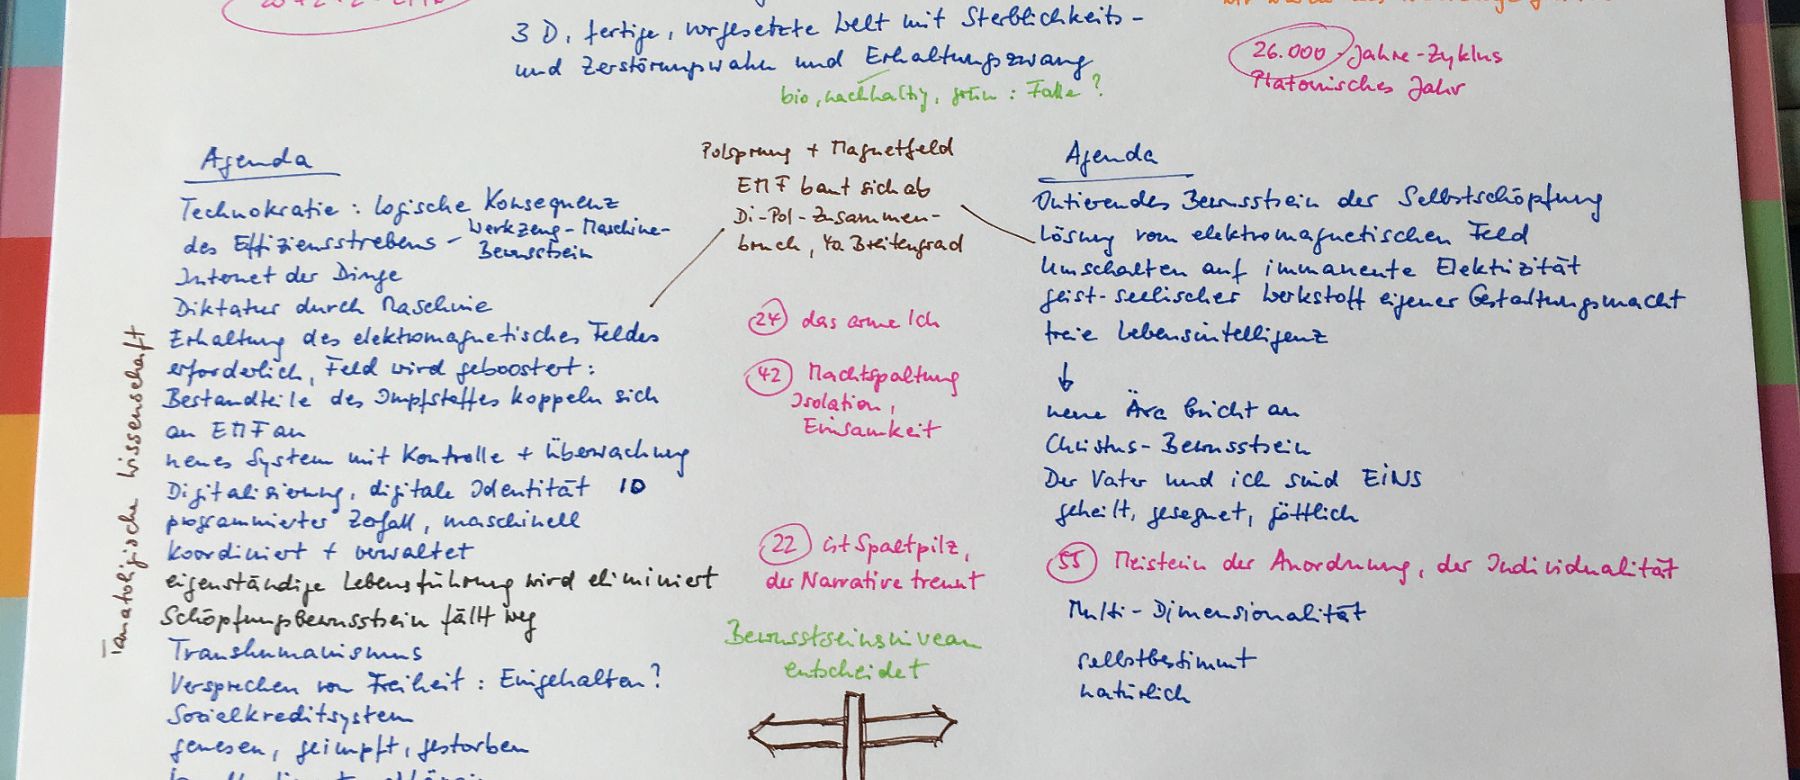 3D, fertige, vorgesetzte Welt mit Sterblichkeits-
und Zerstörungswahn und Erhaltungszwang
bio, nachhaltig, grün : Falle?
26.000-Jahre-Zyklus
Platonisches Jahr
Agenda
Technokratie : logische Konsequenz
des Effiziensstrebens - Werkzeug-Maschine-
Bewusstsein
Internet der Dinge
Diktatur durch Maschine
Erhaltung des elektromagnetisches Feldes
erforderlich, Feld wird geboostert :
Bestandteile des Impfstoffes koppeln sich
an EMF an
neues System mit Kontrolle + Überwachung
Digitalisierung, digitale Identität ID
programmierter Zufall, maschinell
koordiniert + verwaltet
eigenständige Lebensführung wird eliminiert
Schöpfungsbewusstsein fällt weg
Transhumanismus
Versprechen von Freiheit : Eingehalten?
Sozialkreditsystem
genesen, geimpft, gestorben
Tanatoligische Wissenschaft
Polsprung + Magnetfeld
EMF baut sich ab
Di-Pol-Zusammen-
bruch, 40 Breitengrad
24 das arme Ich
42 Machtspaltung
Isolation,
Einsamkeit
22 ist Spaltpilz,
der Narrative trennt
Bewusstseinsniveau
entscheidet
Agenda
Outierendes Bewusstsein der Selbstschöpfung
Lösung vom elektromagnetischen Feld
Umschalten auf immanente Elektrizität
geist-seelischer Werkstoff eigener Gestaltungsmacht
freie Lebensintelligenz
neue Ära bricht an
Christus-Bewusstsein
Der Vater und ich sind EINS
geheilt, gesegnet, göttlich
55 Meisterin der Anordnung, der Individualität
Multi-Dimensionalität
selbstbestimmt
natürlich